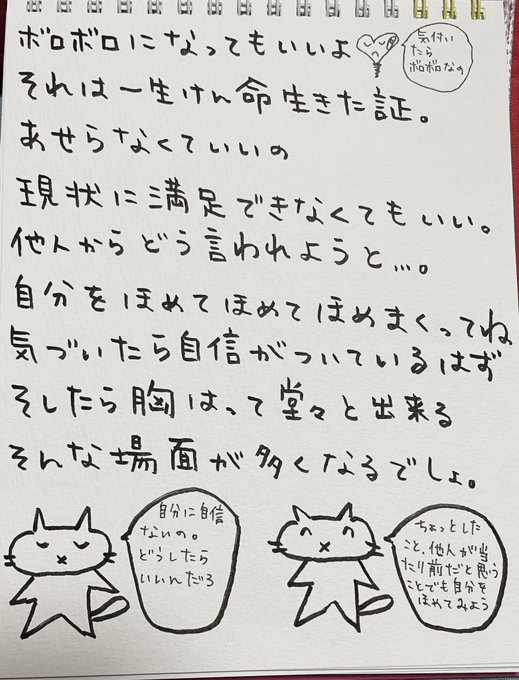 ボロボロになってもいいよ
気付い
たら
ボロボロなの
それは一生けん命生きた証。
あせらなくていいの
現状に満足できなくてもいい。
他人からどう言われようと…。
自分をほめてほめてほめまくってね
気づいたら自信がついているはず
そしたら胸はって堂々と出来る
そんな場面が多くなるでしょ。
自分に自信
ないの。
どうしたら
いいんだろ
ちょっとした
こと、他人が当
たり前だと思う
ことでも自分を
ほめてみよう